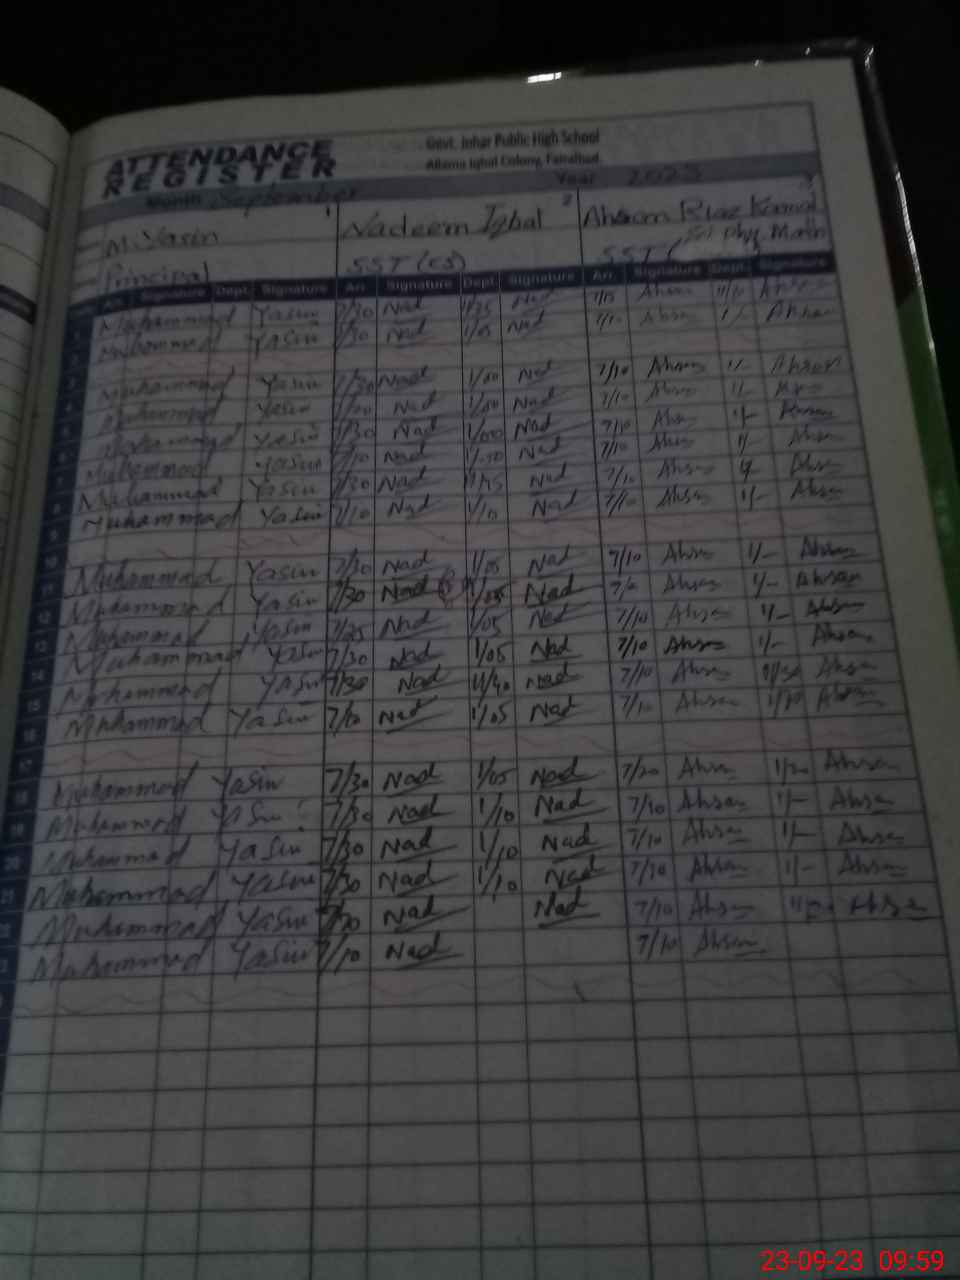 ATTENDANCE
REGISTER
Govt. Johar Public High School
Allama Iqbal Colony, Faisalbad.
Month September Year 2023
1 2 3
M. Yasin Nadeem Iqbal Ahsam Riaz
Principal SST (CS) SST
Arr. Signature Dept. Signature Arr. Signature Dept. Signature Arr. Signature Dept. Signature
1 Muhammad Yasin 7/30 Nad Nad Ahsan
2 Muhammad Yasin 7/30 Nad 1/05 Nad 7/10 Ahsan 1/- Ahsan
4 Muhammad Yasin 7/30 Nad 1/00 Nad 7/10 Ahsan 1/- Ahsan
5 Muhammad Yasin Nad 1/00 Nad 7/10 Ahsan 1/-
6 Muhammad Yasin 7/30 Nad 1/00 Nad 7/10 Ahsan 1/-
7 Muhammad Yasin 7/10 Nad Nad 7/10 Ahsan 1/- Ahsan
8 Muhammad Yasin 7/30 Nad Nad 7/10 Ahsan 1/- Ahsan
9 Muhammad Yasin 7/10 Nad 1/10 Nad 7/10 Ahsan 1/- Ahsan
10
11 Muhammad Yasin 7/30 Nad 1/05 Nad 7/10 Ahsan 1/- Ahsan
12 Muhammad Yasin 7/30 Nad 1/05 Nad Ahsan 1/- Ahsan
13 Muhammad Yasin 7/25 Nad 1/05 Nad 7/10 Ahsan 1/- Ahsan
14 Muhammad Yasin 7/30 Nad 1/05 Nad 7/10 Ahsan 1/- Ahsan
15 Muhammad Yasin 7/30 Nad Nad 7/10 Ahsan Ahsan
16 Muhammad Yasin 7/10 Nad 1/05 Nad 7/10 Ahsan Ahsan
17
18 Muhammad Yasin 7/30 Nad 1/05 Nad 7/20 Ahsan 1/20 Ahsan
19 Muhammad Yasin 7/30 Nad 1/10 Nad 7/10 Ahsan 1/- Ahsan
20 Muhammad Yasin 7/30 Nad 1/10 Nad 7/10 Ahsan 1/- Ahsan
21 Muhammad Yasin 7/30 Nad 1/10 Nad 7/10 Ahsan 1/- Ahsan
Muhammad Yasin Nad Nad 7/10 Ahsan Ahsan
Muhammad Yasin 7/10 Nad 7/10 Ahsan
23-09-23 09:59